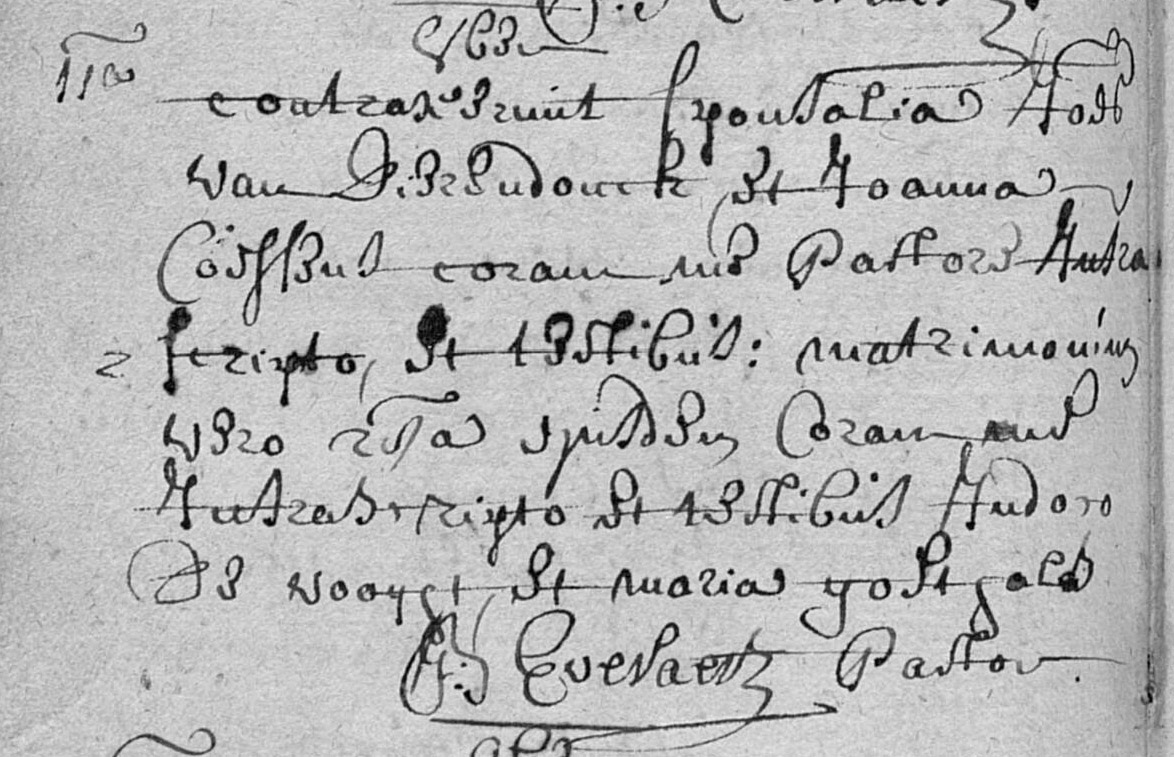 11a contraxerunt sponsalia Jods
van Dierendonck et Joanna
coram me Pastore Intra
scripto, et testibus: matrimonium
vero 25a ejusdem Coram me
Intrascripto et testibus Judoco
De vooght et maria goetgals
J: Everaertz Pastor